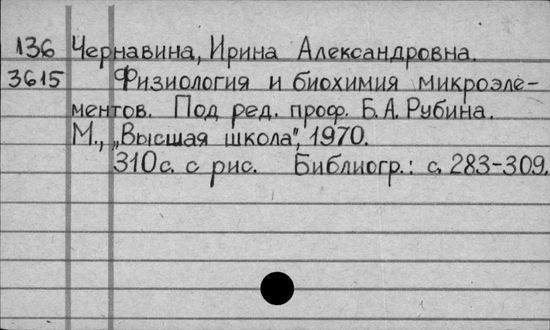 136 Чернавина, Ирина Александровна.
3615 Физиология и биохимия микроэле-
ментов. Под ред. проф. Б. А. Рубина.
М., „Высшая школа", 1970.
310 с. с рис. Библиогр.: с. 283-309.